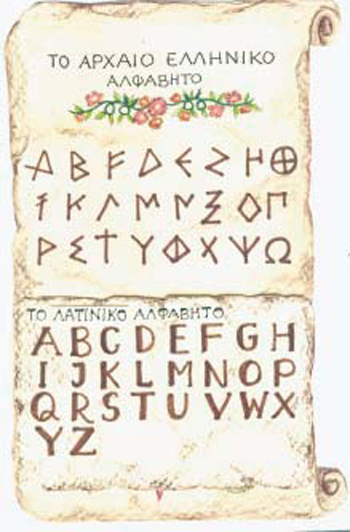 ΤΟ ΑΡΧΑΙΟ ΕΛΛΗΝΙΚΟ
ΑΛΦΑΒΗΤΟ
Α Β Γ Δ Ε Ζ Η Θ
Ι Κ Λ Μ Ν Ξ Ο Π
Ρ Σ Τ Υ Φ Χ Ψ Ω
ΤΟ ΛΑΤΙΝΙΚΟ ΑΛΦΑΒΗΤΟ
A B C D E F G H
I J K L M N O P
Q R S T U V W X
Y Z